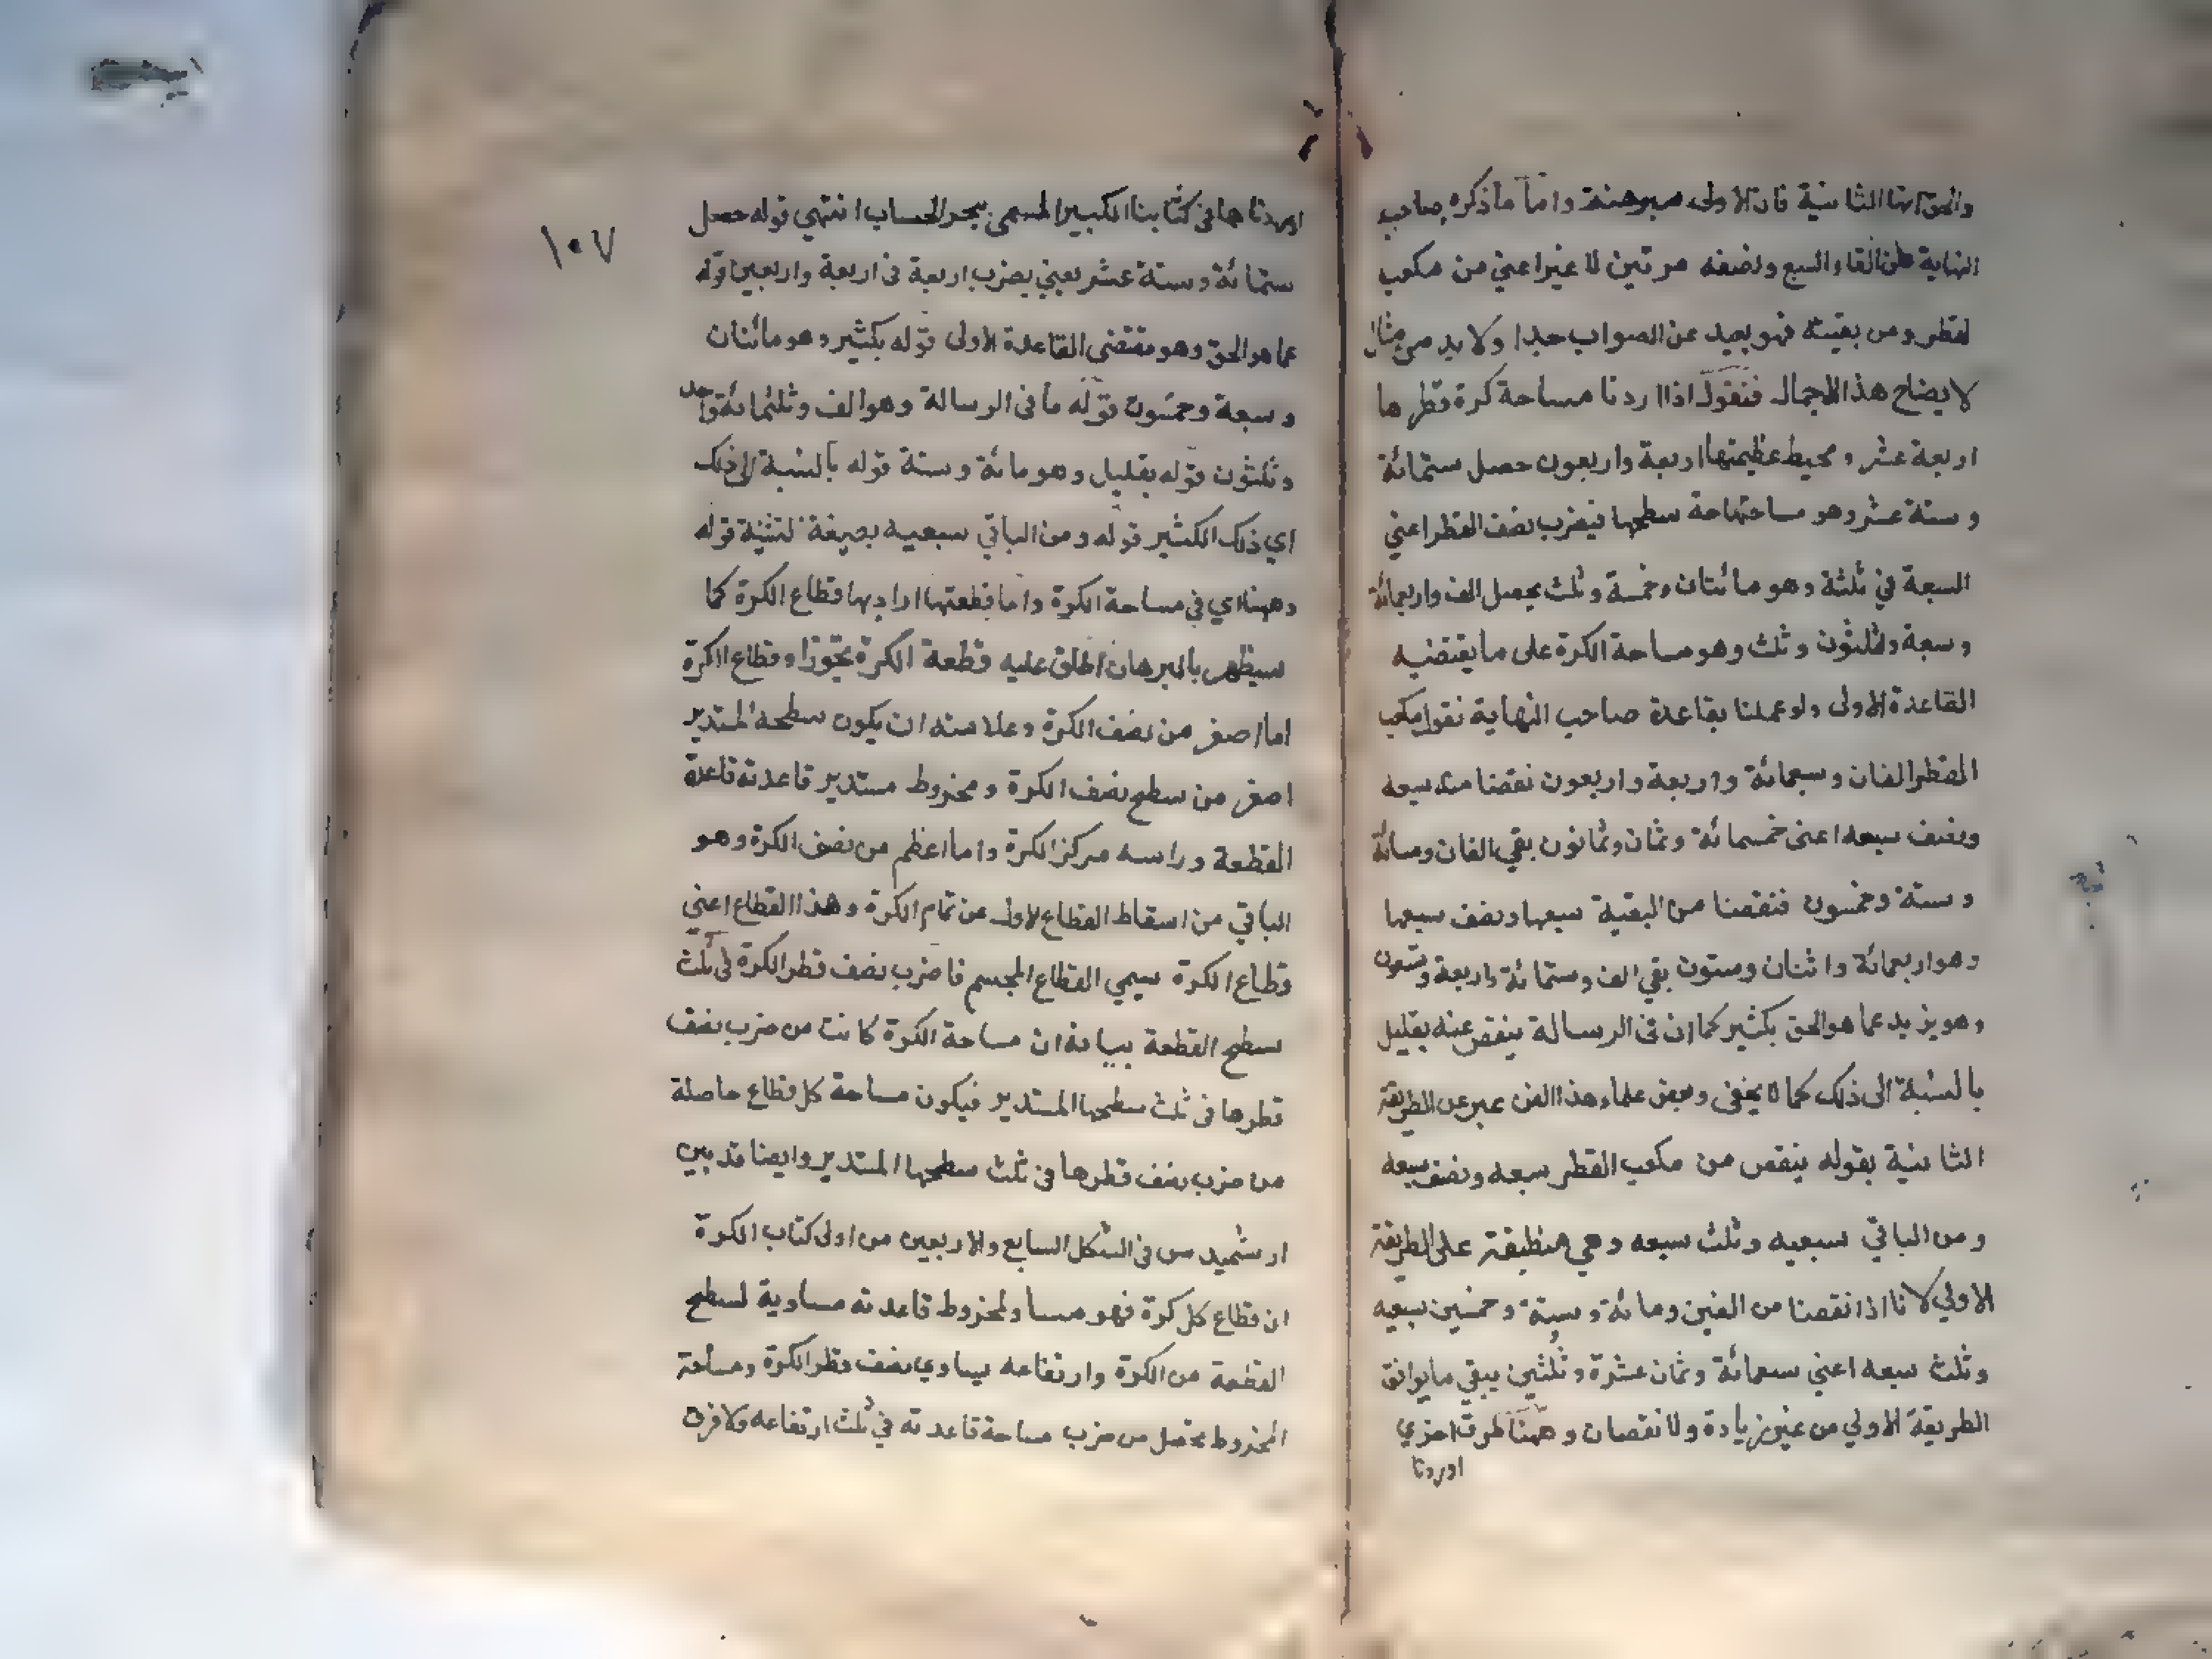 والحق انها الثانية فان الاولى مبرهنة واما ما ذكره صاحب
النهاية من القاء السبع ونصفه مرتين لا غير اعني من مكعب
لقطر ومن بقيته فهو بعيد عن الصواب جدا ولا بد من مثال
لا يضاح هذا الاجمال فنقول اذا اردنا مساحة كرة قطرها
اربعة عشر ومحيط عظيمتها اربعة واربعون حصل ستمائة
وستة عشر وهو مساحتها سطحها فيضرب نصف القطر اعني
السبعة في ثلثة وهو مائتان وخمسة وثلث يحصل الف واربعمائة
وسبعة وثلثون وثلث وهو مساحة الكرة على ما يقتضيه
القاعدة الاولى ولو عملنا بقاعدة صاحب النهاية نقول مكعب
القطر الفان وسبعمائة واربعة واربعون نقصنا منه سبعه
ونصف سبعه اعني خمسمائة وثمان وثمانون بقي الفان ومائة
وستة وخمسون فنقصنا من البقية سبعها ونصف سبعها
وهو اربعمائة واثنان وستون بقي الف وستمائة واربعة وتسعون
وهو يزيد عما هو الحق بكثير كما ان في الرسالة ينقص عنه بقليل
بالنسبة الى ذلك كما لا يخفى وبعض علماء هذا الفن عبر عن الطريقة
الثانية بقوله ينقص من مكعب القطر سبعه ونصف سبعه
ومن الباقي سبعيه وثلث سبعه وهي منطبقة على الطريقة
الاولي لانا اذا نقصنا من الفين ومائة وستة وخمسين سبعيه
وثلث سبعه اعني سبعمائة وثمان عشرة وثلثين يبقي ما يوافق
الطريقة الاولي من غير زيادة ولا نقصان وههنا طرق اخري
اوردنا
١٠٧
اوردناها في كتابنا الكبير المسمى ببحر الحساب انتهي قوله حصل
ستمائة وستة عشر يعني بضرب اربعة في اربعة واربعين قوله
عما هو الحق وهو مقتضي القاعدة الاولى قوله بكثير وهو مائتان
وسبعة وخمسون قوله ما في الرسالة وهو الف وثلثمائة واحد
وثلثون قوله بقليل وهو مائة وستة قوله بالنسبة الى ذلك
اي ذلك الكثير قوله ومن الباقي سبعيه بصيغة لتثنية قوله
وههنا اي في مساحة الكرة واما قطعتها اراد بها قطاع الكرة كما
سيظهر بالبرهان اطلق عليه قطعة الكرة تجوزا وقطاع الكرة
اما اصغر من نصف الكرة وعلامته ان يكون سطحه المستدير
اصغر من سطح نصف الكرة ومخروط مستدير قاعدته قاعدة
القطعة وراسه مركز الكرة واما اعظم من نصف الكرة وهو
الباقي من اسقاط القطاع لاول من تمام الكرة وهذا القطاع اعني
قطاع الكرة يسمي القطاع المجسم فاضرب نصف قطر الكرة في ثلث
سطح القطعة بيانه ان مساحة الكرة كانت من ضرب نصف
قطرها في ثلث سطحها المستدير فيكون مساحة كل قطاع حاصلة
من ضرب نصف قطرها في ثلث سطحها المستدير وايضا قد بين
ارشميدس في الشكل السابع والاربعين من اولى كتاب الكرة
ان قطاع كل كرة فهو مساو لمخروط قاعدته مساوية لسطح
القطعة من الكرة وارتفاعه يساوي نصف قطر الكرة ومساحة
المخروط تحصل من ضرب مساحة قاعدته في ثلث ارتفاعه ولا فرق